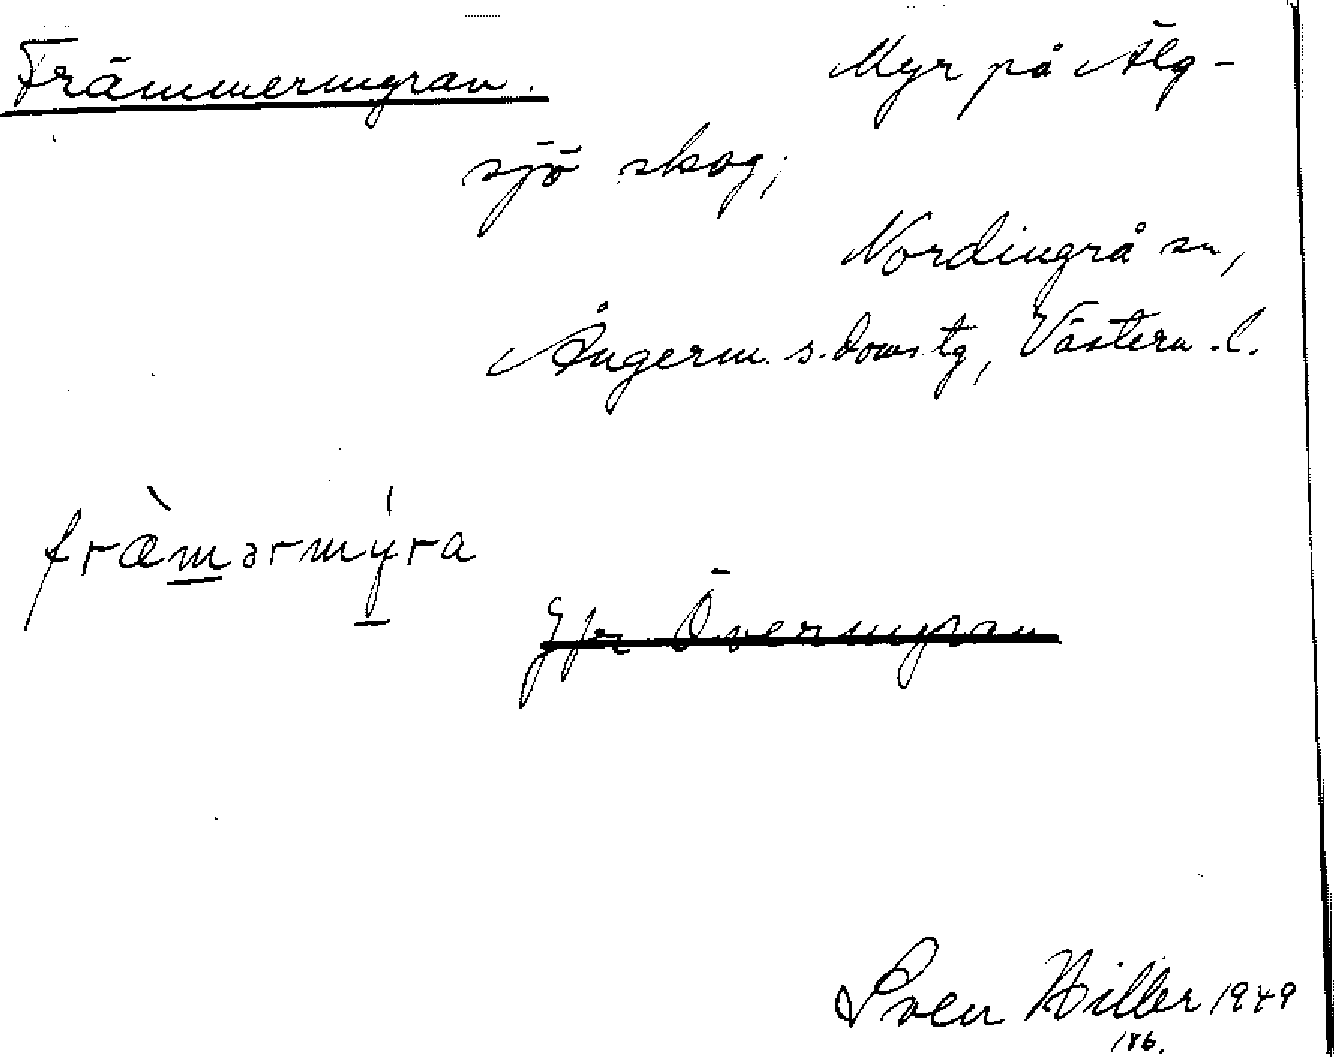 Främmermyran. Myr på Älg-
sjö skog,
Nordingrå sn,
Ångerm. s. doms.tg, Västern. l.
fræ̀mərmýra
Jfr Övermyran
Sven Hiller 1949
186.